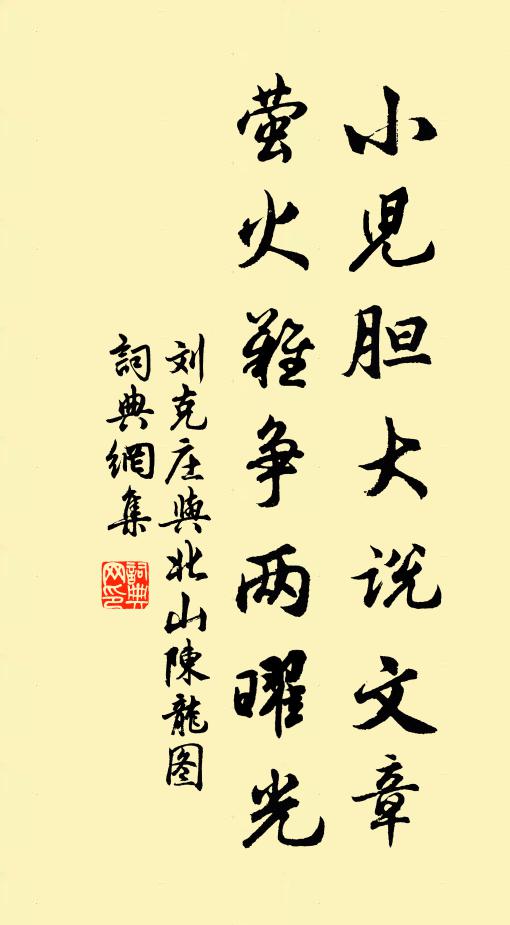 小児胆大说文章
萤火難争两曜光
刘克庄與北山陳龍图
詞典網集
詞典
网印